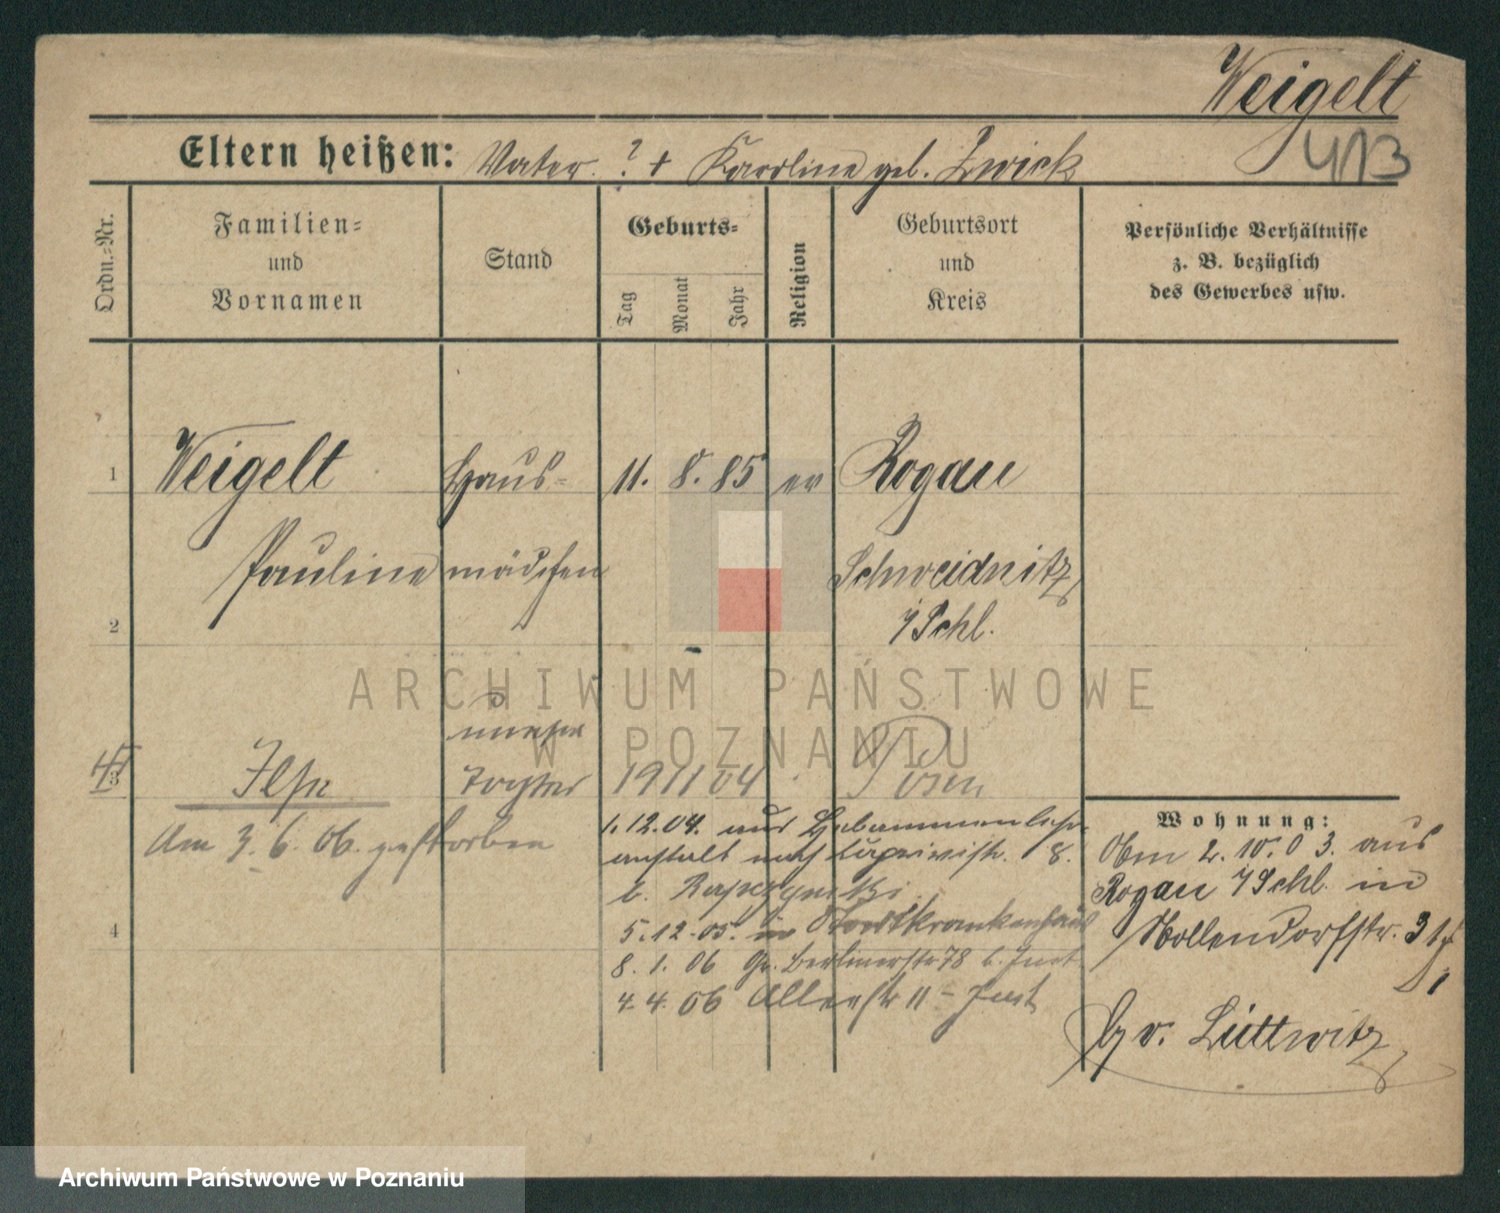 Weigelt
Eltern heißen: Vater. ? + Karoline geb. Zwick
Ordn.-Nr.
Familien-
und
Vornamen
Stand
Geburts-
Tag
Monat
Jahr
Religion
Geburtsort
und
Kreis
Persönliche Verhältnisse
z. B. bezüglich
des Gewerbes usw.
1 Weigelt Haus- 11. 8. 85 ev Rogau
Pauline mädchen Schweidnitz
2 i/Schl.
ARCHIWUM PAŃSTWOWE
W POZNANIU
unehe
3 Ilse Tochter 19 11 04 Posen
Am 3. 6. 06. gestorben
1. 12. 04. aus Hebammenlehr-
anstalt nach 8.
b.
4 5. 12. 05. in Stadtkrankenhaus
8. 1. 06 Gr. Berlinerstr 78 b. Just
4. 4. 06 Alleestr 11 - Just
Wohnung:
Obm 2. 10. 03. aus
Rogau i/Schl. in
Nollendorfstr. 31
b/ v. Lüttwitz
Archiwum Państwowe w Poznaniu